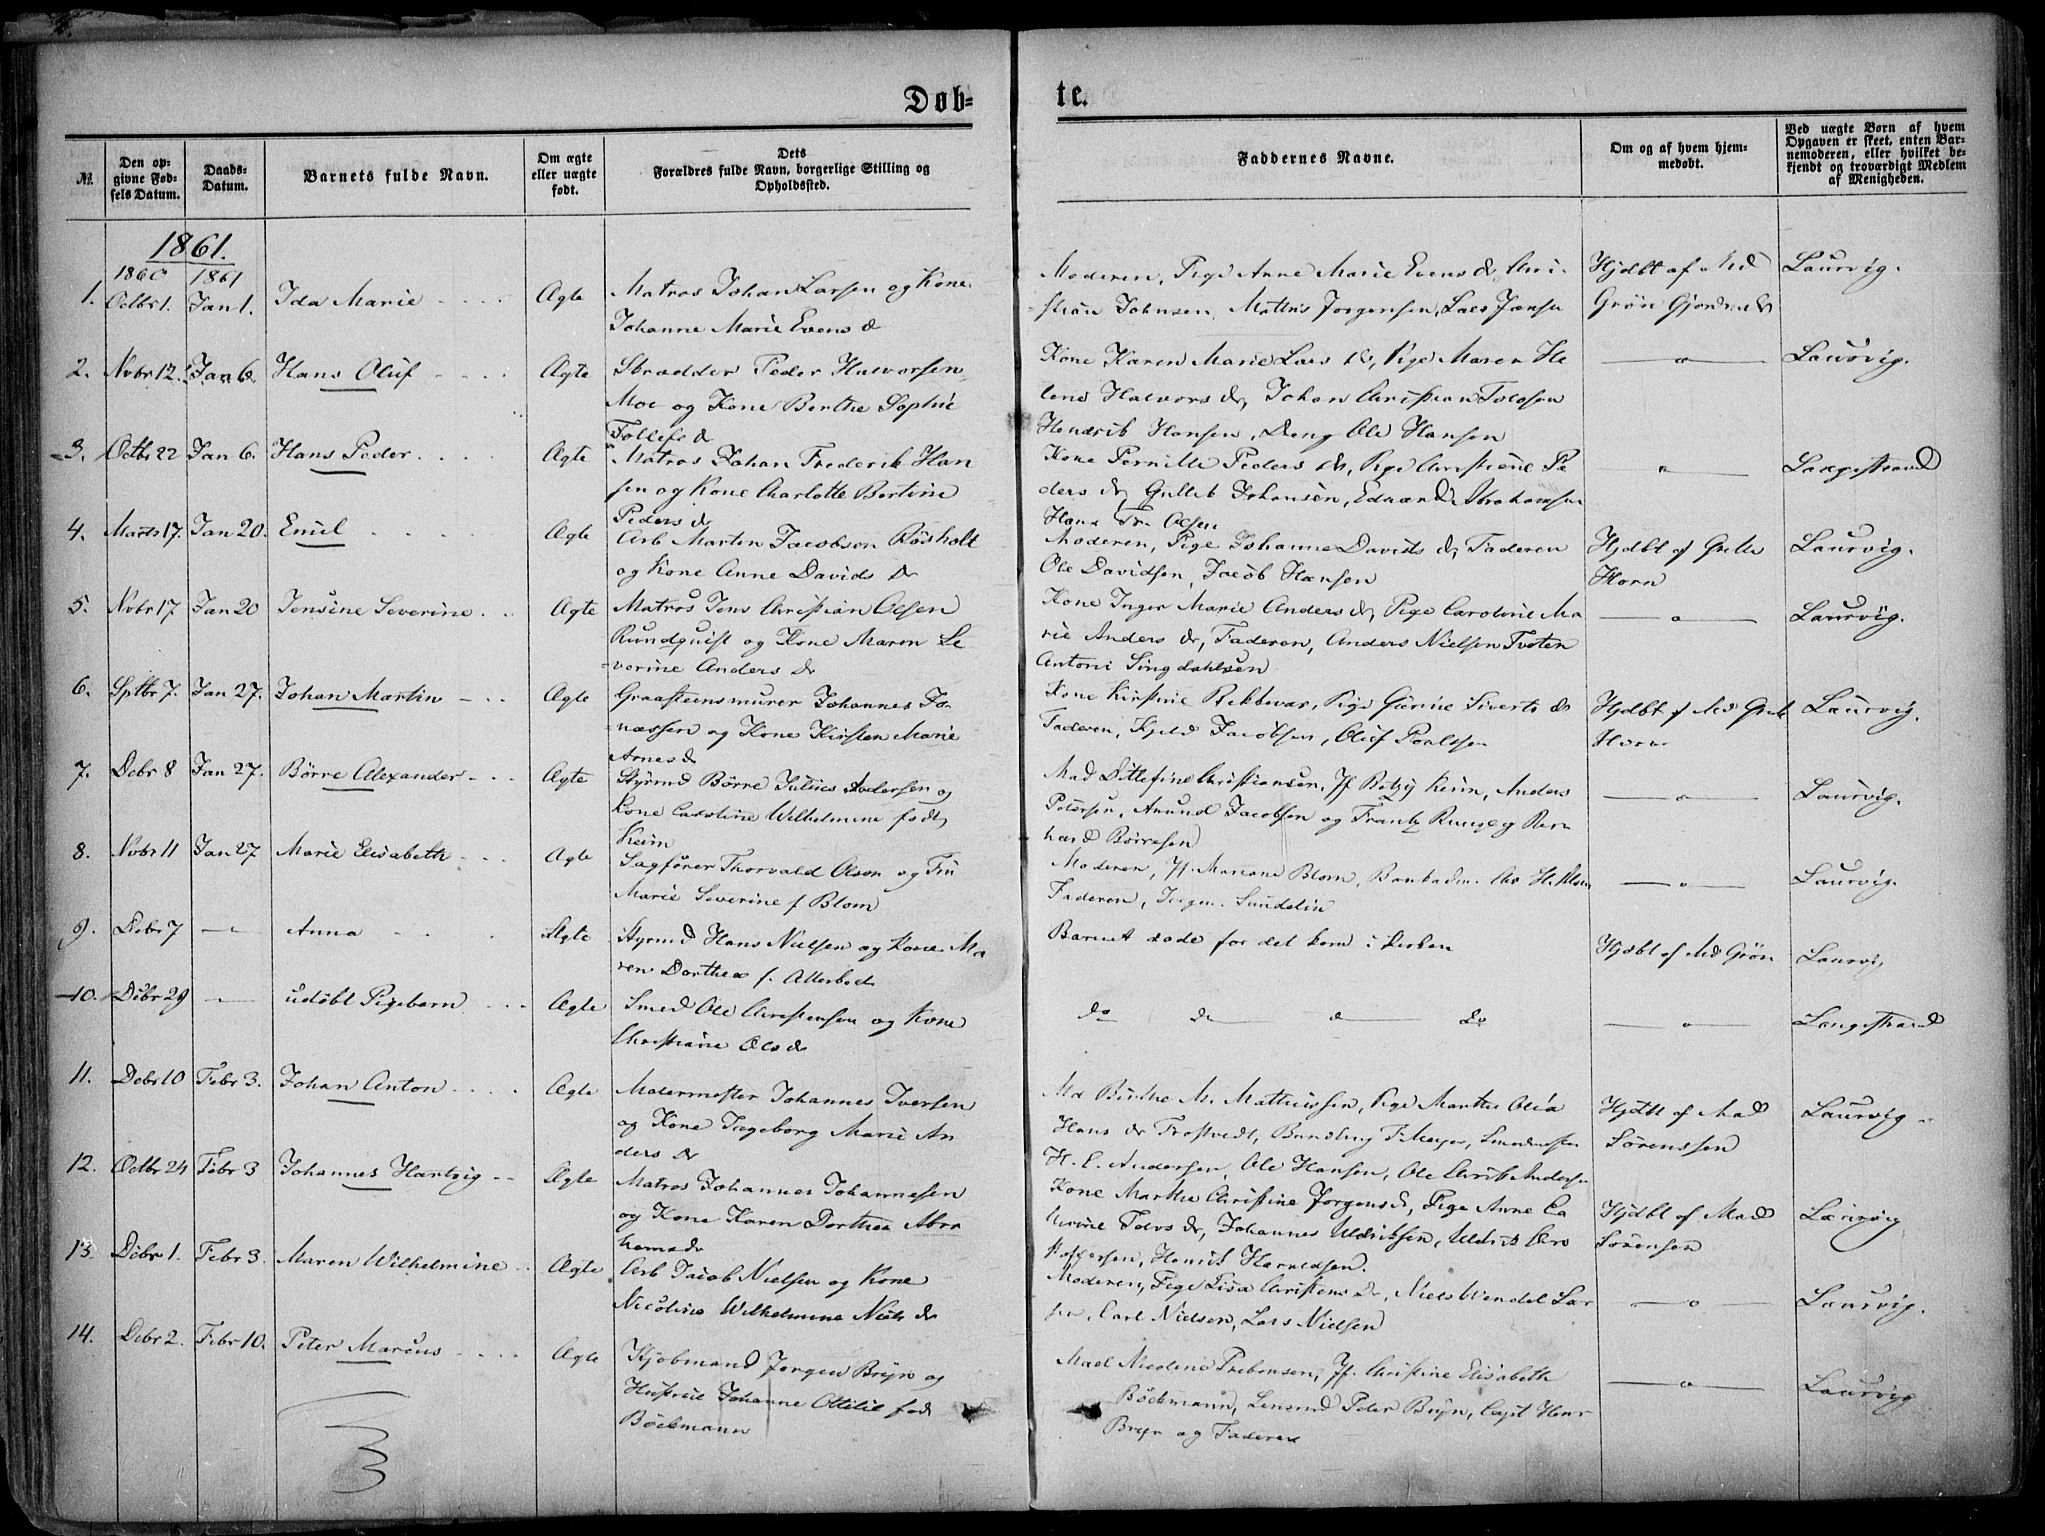 Døb-
te.
№.
Den op-
givne Fød-
sels Datum.
Daabs-
Datum.
Barnets fulde Navn.
Om ægte
eller uægte
født.
Dets
Forældres fulde Navn, borgerlige Stilling og
Opholdssted.
Faddernes Navne.
Om og af hvem hjem-
medøbt.
Ved uægte Børn af hvem
Opgaven er skeet, enten Bar-
nemoderen, eller hvilket be-
kjendt og troværdigt Medlem
af Menigheden.
1861.
1860 1861
1. Octbr 1. Jan 1. Ida Marie Ægte
Matros Johan Larsen og Kone
Johanne Marie Evens d
Moderen, Pige Anne Marie Evens d, Chri-
stian Johnsen, Mathis Jørgensen, Lars Jansen
Hjdbt af Md
Grøn
Laurvig.
2. Nvbr 12. Jan 6. Hans Oluf Ægte
Skrædder Peder Halvorsen
Moe og Kone Berthe Sophie
Tollefs d
Kone Karen Marie Lars d, Pige Maren He
lene Halvors d, Johan Christian
Hendrik Hansen, Dreng Ole Hansen
— " —
Laurvig.
3. Octbr 22 Jan 6. Hans Peder Ægte
Matros Johan Frederik Han
sen og Kone Charlotte Bertine
Peders d
Kone Pernille Peders d, Pige Christiane Pe
ders d, Gullik Johansen, Eduard Abrahamsen
Hans Fr. Olsen
— " —
Langestrand
4. Marts 17. Jan 20. Emil Ægte
Arb Martin Jacobsen Røsholt
og Kone Anne Davids d
Moderen, Pige Johanne Davids d, Faderen
Ole Davidsen, Jacob Hansen
Hjdbt af
Horn
Laurvig.
5. Nvbr 17 Jan 20 Jensine Severine Ægte
Matros Jens Christian Olsen
Rundquist og Kone Maren Se
verine Anders d
Kone Inger Marie Anders d, Pige Caroline Ma
rie Anders d, Faderen, Anders Nielsen Tveten
Antoni Singdahlsen
— " —
Laurvig.
6. Sptbr 7. Jan 27. Johan Martin Ægte
Graasteensmurer Johannes Jo
nassen og Kone Kirsten Marie
Arnes d
Kone Kirstine Siverts d
Faderen, Kjeld Jacobsen, Oluf Poulsen
Hjdbt af Md
Horn
Laurvig.
7. Debr 8 Jan 27. Børre Alexander Ægte
Styrmd Børre Julius Andersen og
Kone Caroline Wilhelmine født
Keim
Mad Ditlefine Christiansen, Jf Betzy Keim, Anders
Petersen, Amund Jacobsen og Frantz Runge og Bern
hard Børresen
— " —
Laurvig.
8. Nvbr 11 Jan 27 Marie Elisabeth Ægte
Sagfører Thorvald Olsen og Fru
Marie Severine f Blom
Moderen, Jf. Mariane Blom, Blom
Faderen, Sundelin
— " —
Laurvig.
9. Debr 7 — " Anna Ægte
Styrmd Hans Nielsen og Kone Ma
ren Dorthea f. Atterbod
Barnet døde før det kom i Kirken
Hjdbt af Md Grøn
Laurvig
10. Debr 29 — udøbt Pigebarn Ægte
Smed Ole Christensen og Kone
Christiane Ols d
do do do do
— " —
Langestrand
11. Debr 10 Febr 3. Johan Anton Ægte
Malermester Johannes Iversen
og Kone Ingeborg Marie An
ders d
Md Birthe M. Mathiessen, Pige Marthe Olea
Hans d Trostvedt, Meyer,
H. C. Andersen, Ole Hansen, Ole Andersen
Hjdbt af Mad
Sørenssen
Laurvig
12. Octbr 24 Febr 3 Johannes Hartvig Ægte
Matros Johannes Johannesen
og Kone Karen Dorthea Abra
hams d
Kone Marthe Christine Jørgens d, Pige Anne Ca
Johannes Uldriksen, Uldrik Chri
stoffersen, Henrik
Hjdbt af Mad
Sørensen
Laurvig
13. Debr 1. Febr 3. Maren Wilhelmine Ægte
Arb Jacob Nielsen og Kone
Nicoline Wilhelmine Niels d
Moderen, Pige Lisa Christens d, Niels Wendel Lar
sen, Carl Nielsen, Lars Nielsen
— " —
Laurvig.
14. Debr 2. Febr 10. Peter Marius Ægte
Kjøbmand Jørgen Bryn og
Hustrue Johanne Ottilie fød
Böckmann
Mad Nicoline Prebensen, Jf. Christine Elisabeth
Böckmann, Peder Bryn, Capt
Bryn og Faderen
— " —
Laurvig